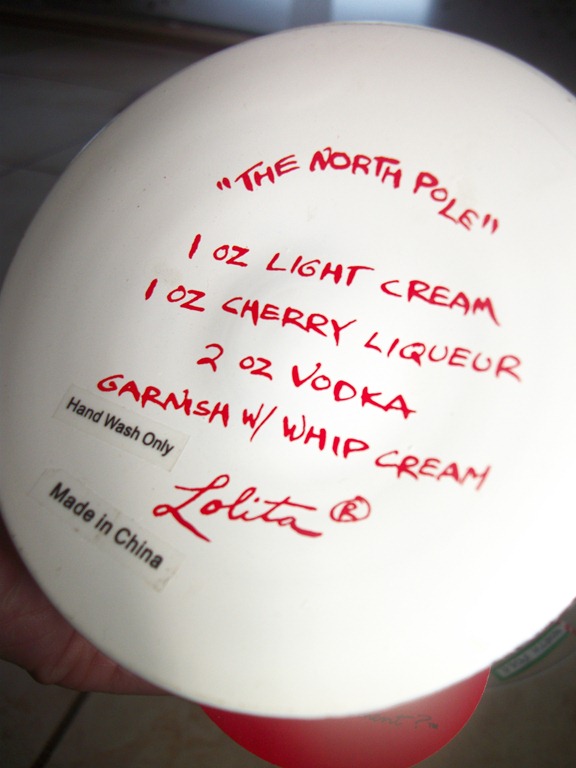 "THE NORTH POLE"
1 OZ LIGHT CREAM
1 OZ CHERRY LIQUEUR
2 OZ VODKA
GARNISH W/ WHIP CREAM
Hand Wash Only
Lolita ®
Made in China